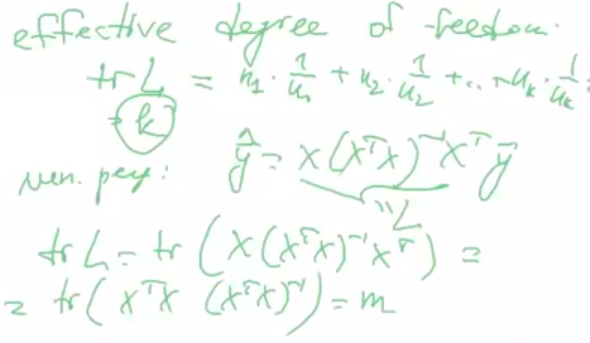 effective degree of freedom.
tr L = n₁ · 1/n₁ + n₂ · 1/n₂ + ... + n_k · 1/n_k =
= k
лин. рег: ŷ = X(XᵀX)⁻¹Xᵀy⃗
"L
tr L = tr (X(XᵀX)⁻¹Xᵀ) =
= tr(XᵀX (XᵀX)⁻¹) = m